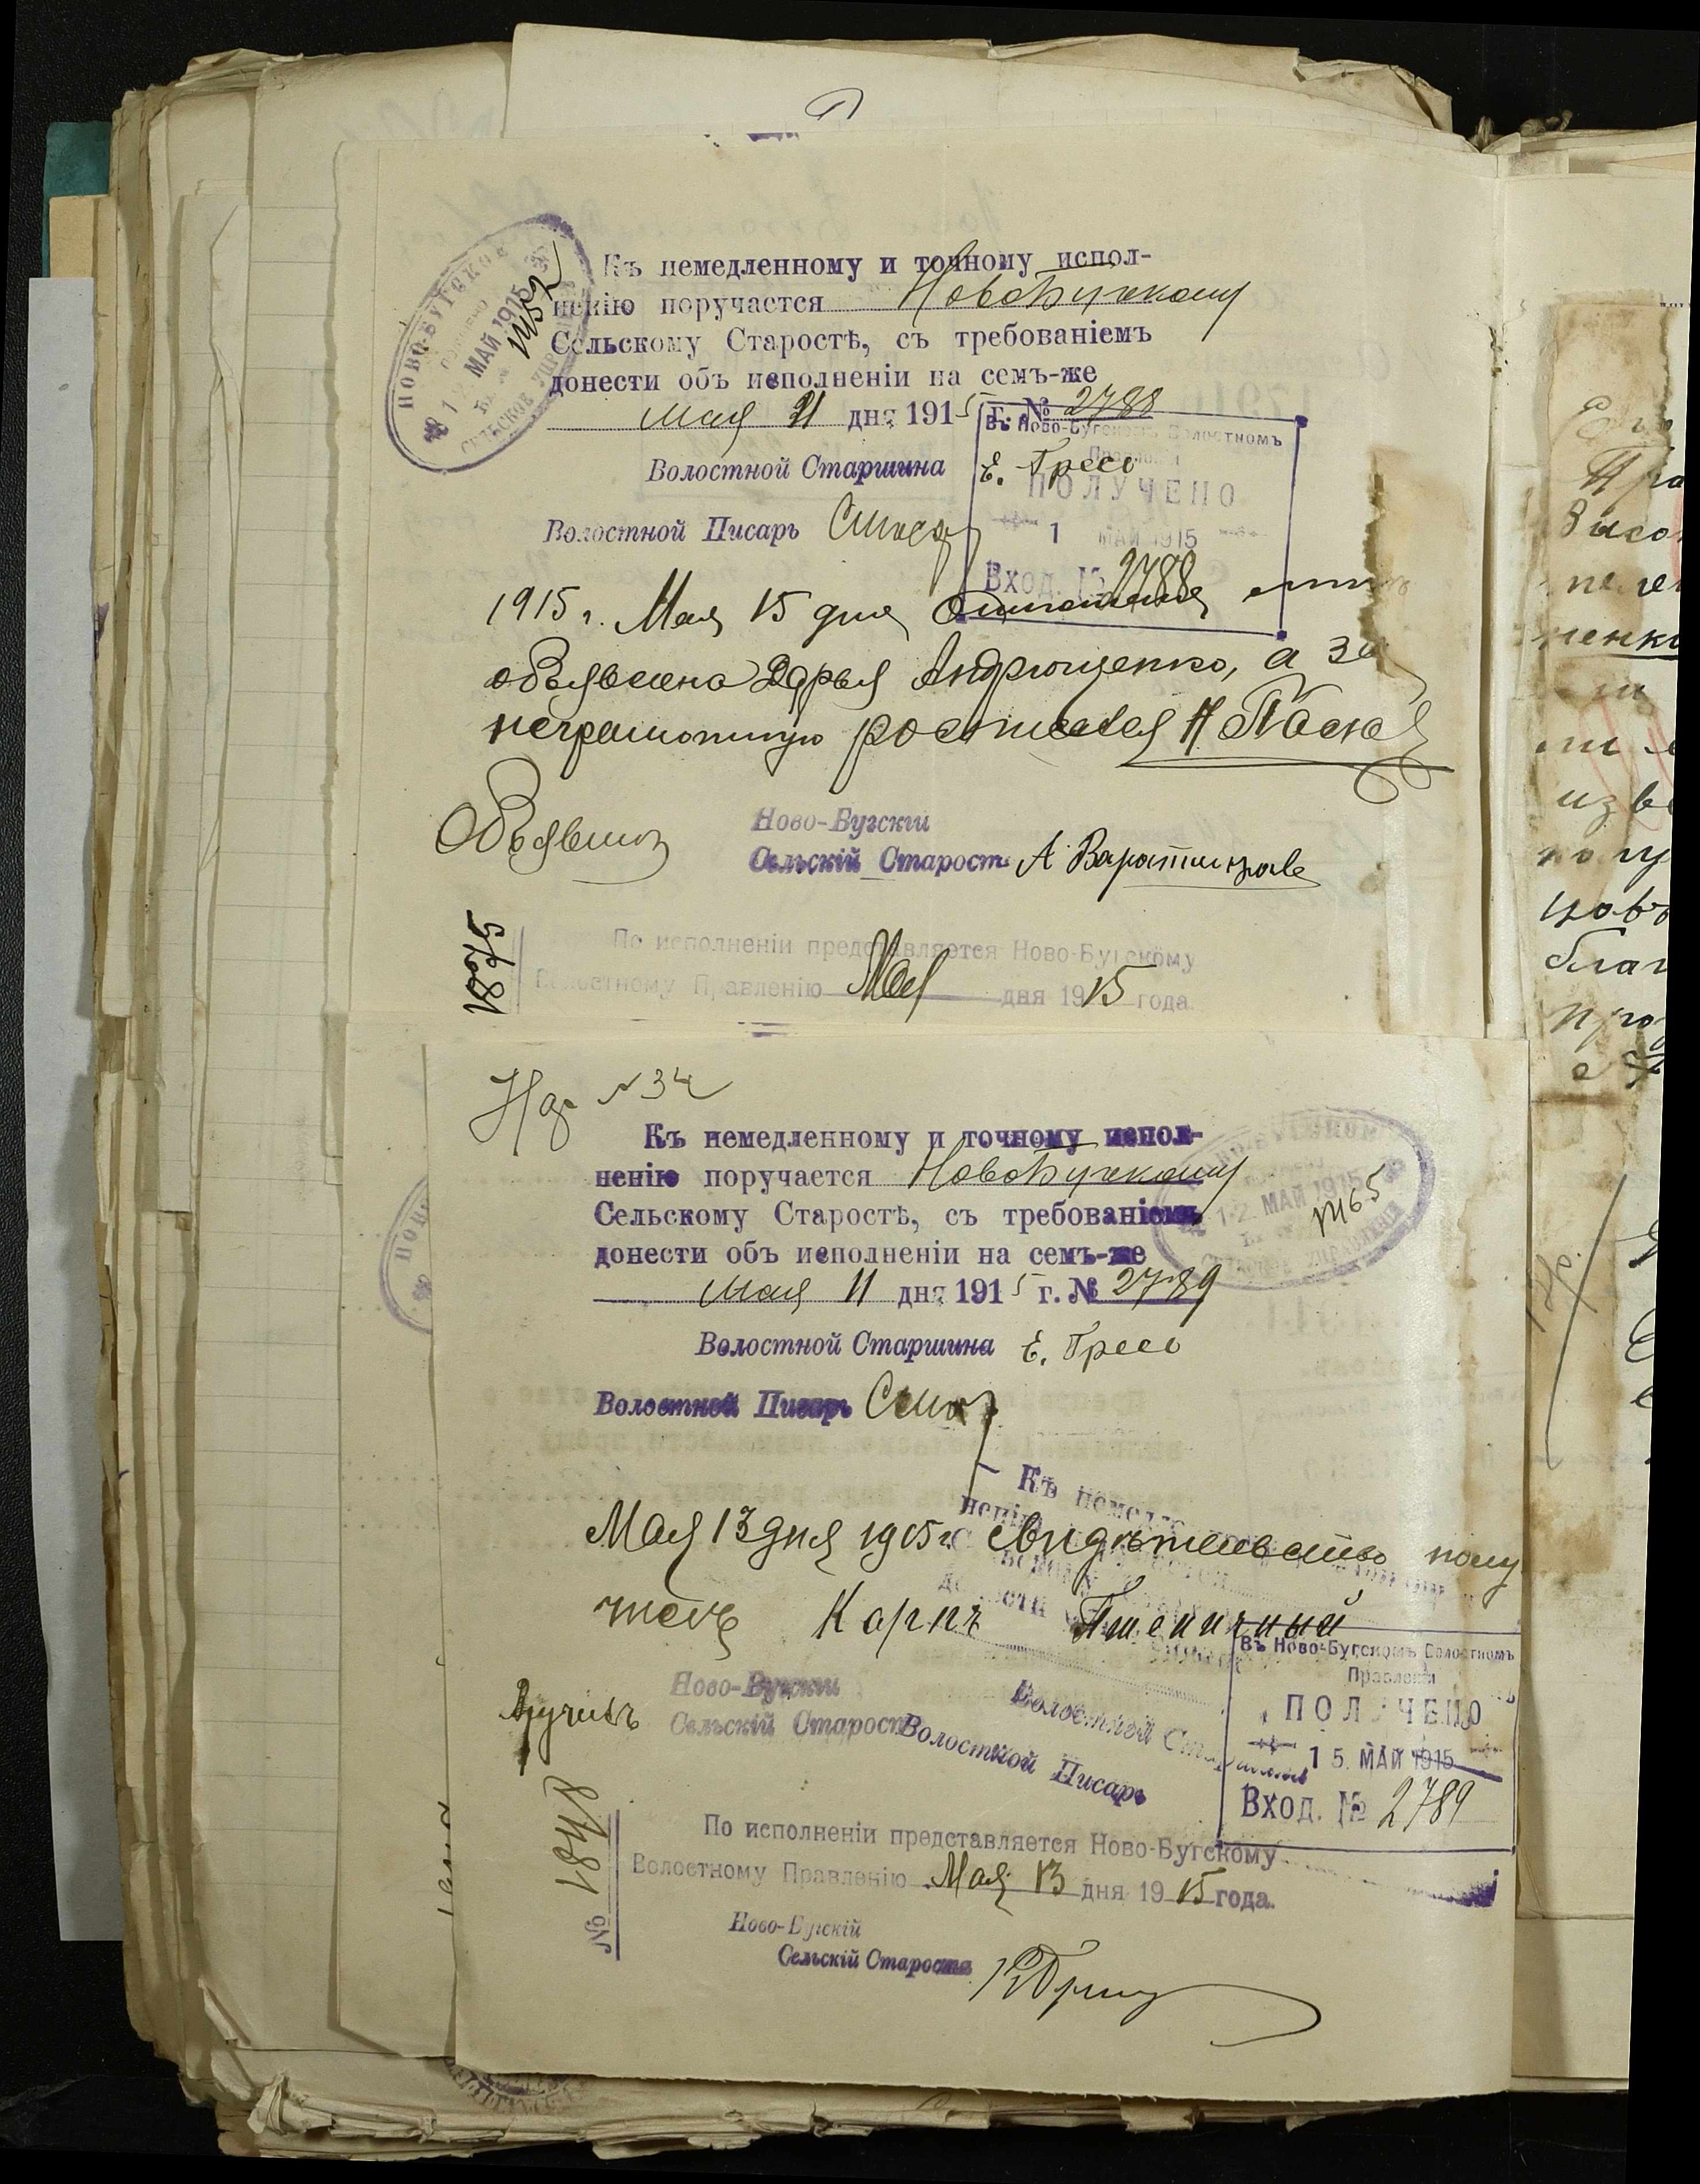 Къ немедленному и точному испол-
ненію поручается НовоБугскому
Сельскому Старостѣ, съ требованіемъ
донести объ исполненіи на семъ-же
Мая 11 дня 1915 г. № 2788
Волостной Старшина Е. Гресь
Волостной Писарь
НОВО-БУГСКОЕ
12 МАЙ 1915
СЕЛЬСКОЕ
Въ Ново-Бугскомъ Волостномъ
Правленіи
ПОЛУЧЕНО
1 МАЙ 1915
Вход. № 2788
1915 г. Мая 15 дня
объявлена Дарья Андрющенко, а за
неграмотную росписался Н
Объявилъ
Ново-Бугскій
Сельскій Староста А
По исполненіи представляется Ново-Бугскому
Волостному Правленію Мая дня 1915 года.
№34
Къ немедленному и точному испол-
ненію поручается НовоБугскому
Сельскому Старостѣ, съ требованіемъ
донести объ исполненіи на семъ-же
Мая 11 дня 1915 г. № 2789
12 МАЙ 1915
1465
Волостной Старшина Е. Гресь
Волостной Писарь
Къ немедл
Мая 13 дня 1915 г. Свидѣтельство полу
чилъ Карпъ Пшеничный
Въ Ново-Бугскомъ Волостномъ
Правленіи
ПОЛУЧЕНО
15 МАЙ 1915
Вход. № 2789
Вручилъ
Ново-Бугскій
Сельскій Староста
Волостной Старшина
Волостной Писарь
№ 1848
По исполненіи представляется Ново-Бугскому
Волостному Правленію Мая 13 дня 1915 года.
Ново-Бугскій
Сельскій Староста